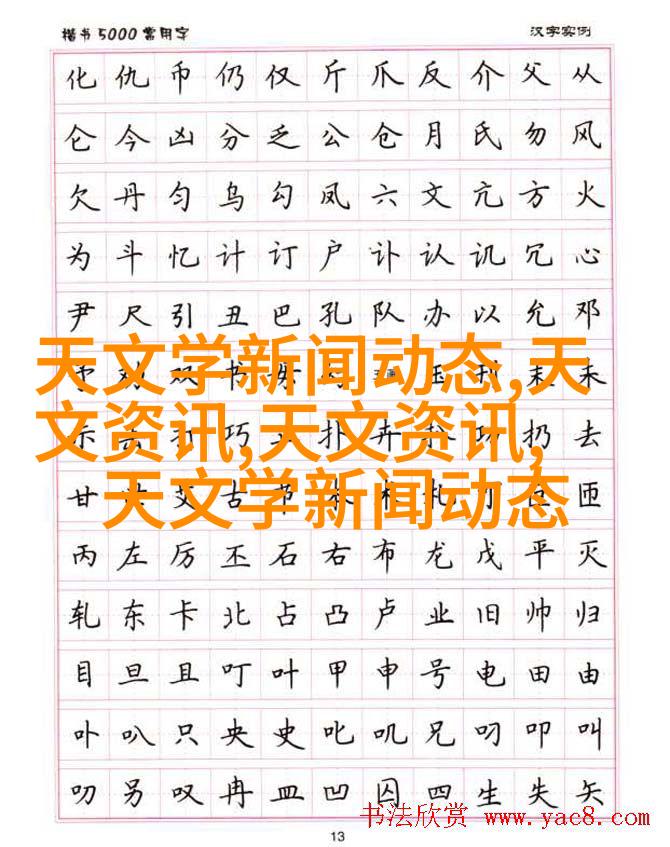 楷书5000常用字 汉字实例
化仇币仍仅斤爪反介父从
仑今凶分乏公仓月氏勿风
欠丹匀乌勾凤六文亢方火
为斗忆计订户讣认讥冗心
尹尺引丑巴孔队办以允邓
天文学新闻动态,天
双书未
文资讯,天文资讯,
巧扑卉扔去
天文学新闻动态
甘艾古匝
丙左厉丕石右布龙戊平灭
轧东卡北占凸卢业旧帅归
目旦且叮叶甲申号电田由
卟叭只央史叱叽兄叨叩叫
叻另叹冉皿凹囚四生失矢
书法欣赏 www.yac8.com
13